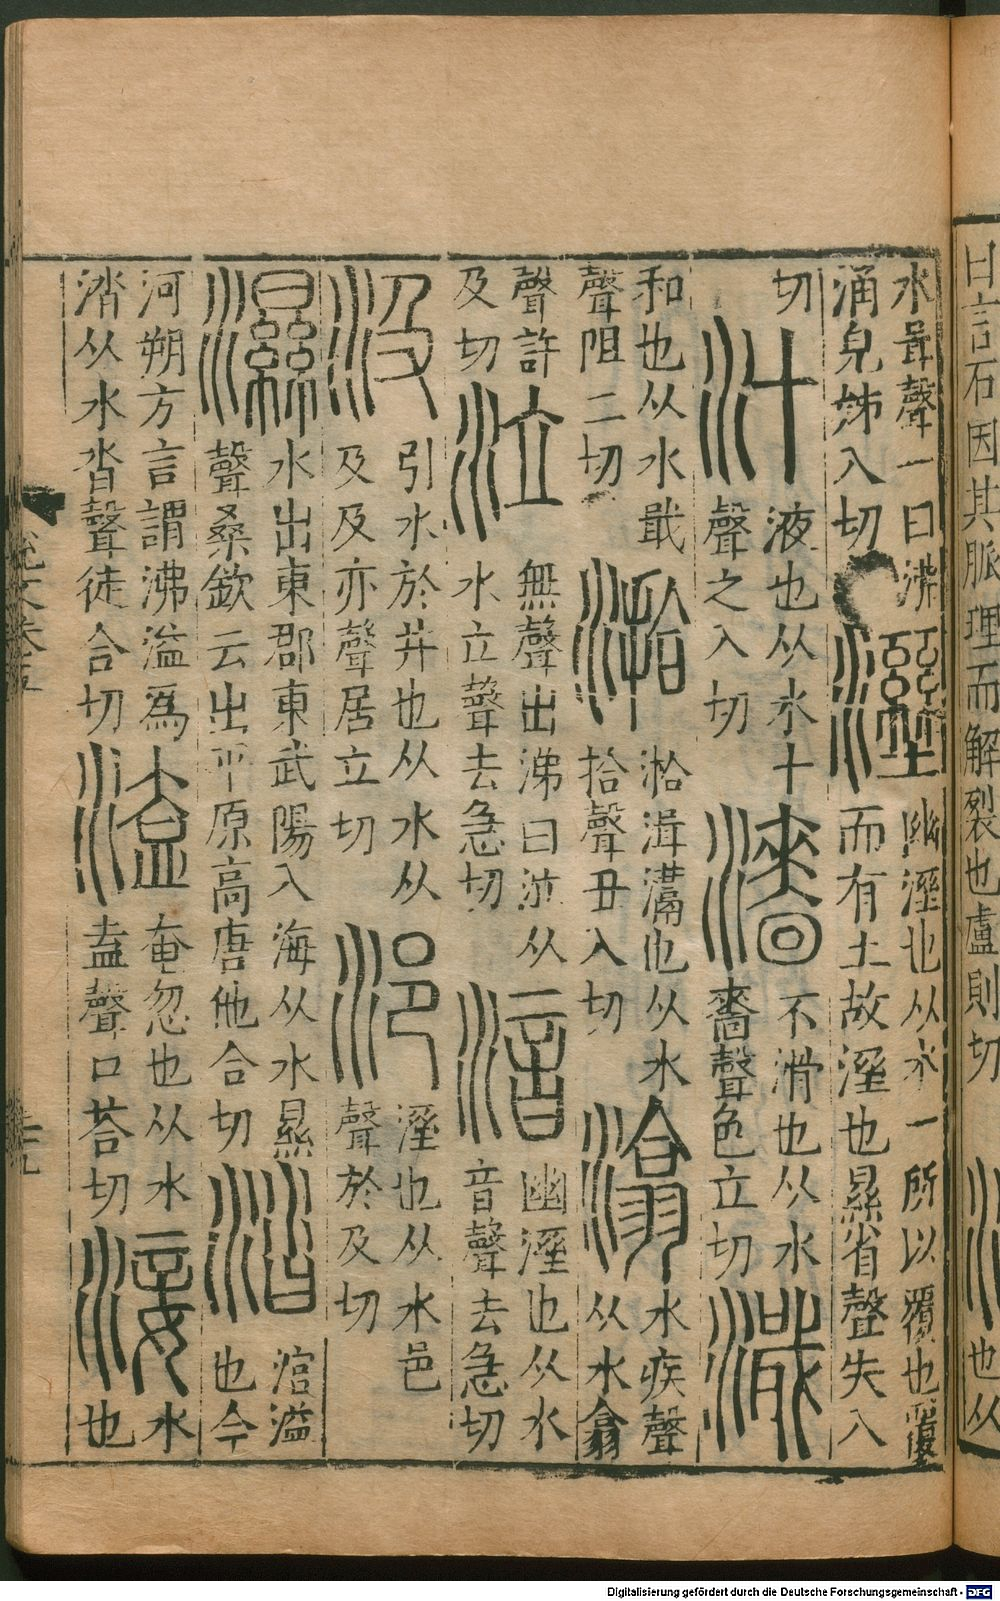 日言石因其脈理而解裂也盧則切
也从
水咠聲一曰沸
涌皃姊入切
溼
幽溼也从水一所以覆也覆
而有土故溼也㬎省聲失入
切
汁
液也从水十
聲之入切
濇
不滑也从水
嗇聲色立切
濈
和也从水戢
聲阻二切
湁
湁湒也从水
拾聲丑入切
潝
水疾聲
从水翕
聲許
及切
泣
無聲出涕曰泣从
水立聲去急切
湆
幽溼也从水
音聲去急切
汲
引水於井也从水从
及及亦聲居立切
浥
溼也从水邑
聲於及切
濕
水出東郡東武陽入海从水㬎
聲桑欽云出平原高唐他合切
涾
涫溢
也今
河朔方言謂沸溢爲
涾从水沓聲徒合切
溘
奄忽也从水
盍聲口荅切
淁
水
也
Digitalisierung gefördert durch die Deutsche Forschungsgemeinschaft - DFG